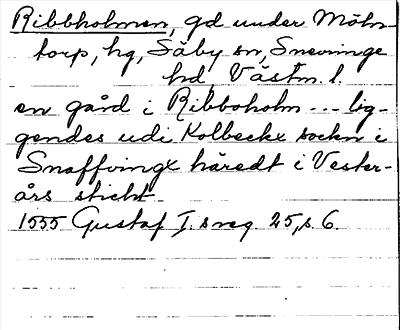 Ribbholmen, gd under Möhn-
torp, hg, Säby sn, Snevringe
hd, Västm. l.
en gård i Ribboholm --- lig-
gendes udi Kolbeckx sockn i
Snaffvingx häredt i Vester-
års sticht
1555 Gustaf I. s reg. 25, s. 6.